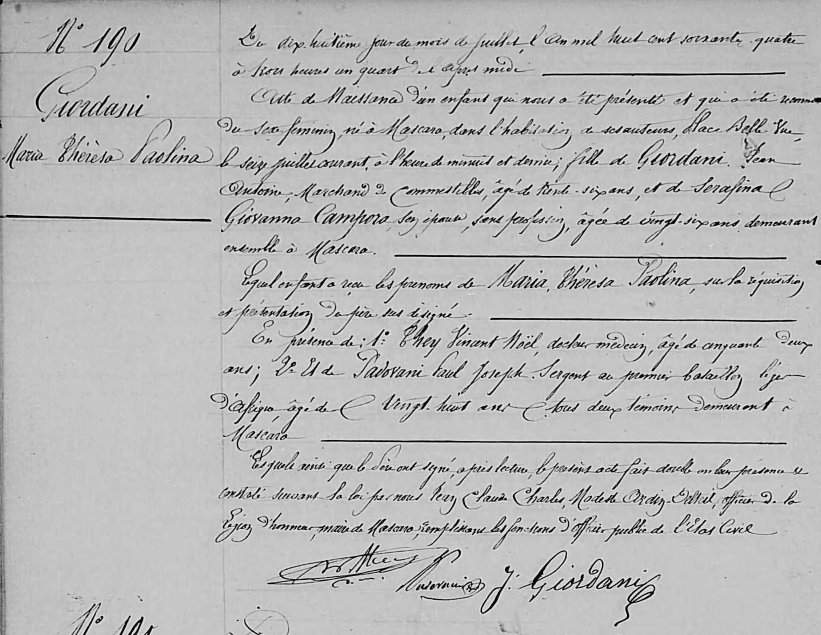 N° 190
Giordani
Maria Thérèsa Paolina
Du dix huitième jour du mois de juillet, l'an mil huit cent soixante quatre
à trois heures un quart de l'après midi
Acte de Naissance d'un enfant qui nous a été présenté et qui a été reconnu
du sexe féminin, né à Mascara, dans l'habitation de ses auteurs, Place Belle Vue,
le seize juillet courant, à l'heure de minuit et demie; fille de Giordani Jean
Antoine, Marchand de Commestibles, âgé de trente-six ans, et de Serafina
Giovanna Campora, son épouse, sans profession, âgée de vingt-six ans demeurant
ensemble à Mascara.
Lequel enfant a reçu les prénoms de Maria, Thérèsa Paolina, sur la réquisition
et présentation du père sus désigné
En présence de: 1° Vincent Noël, docteur médecin, âgé de cinquante deux
ans; 2° Et de Padovani Paul Joseph Sergent au premier bataillon léger
d'Afrique âgé de Vingt huit ans tous deux témoins demeurant à
Mascara
Lesquels ainsi que le père ont signé, après lecture, le présent acte fait double en leur présence et
constaté suivant la loi par nous Claude Charles, Modeste officier de la
Légion d'honneur, maire de Mascara, remplissant les fonctions d'officier public de l'État Civil
Padovani J. Giordani
N° 191